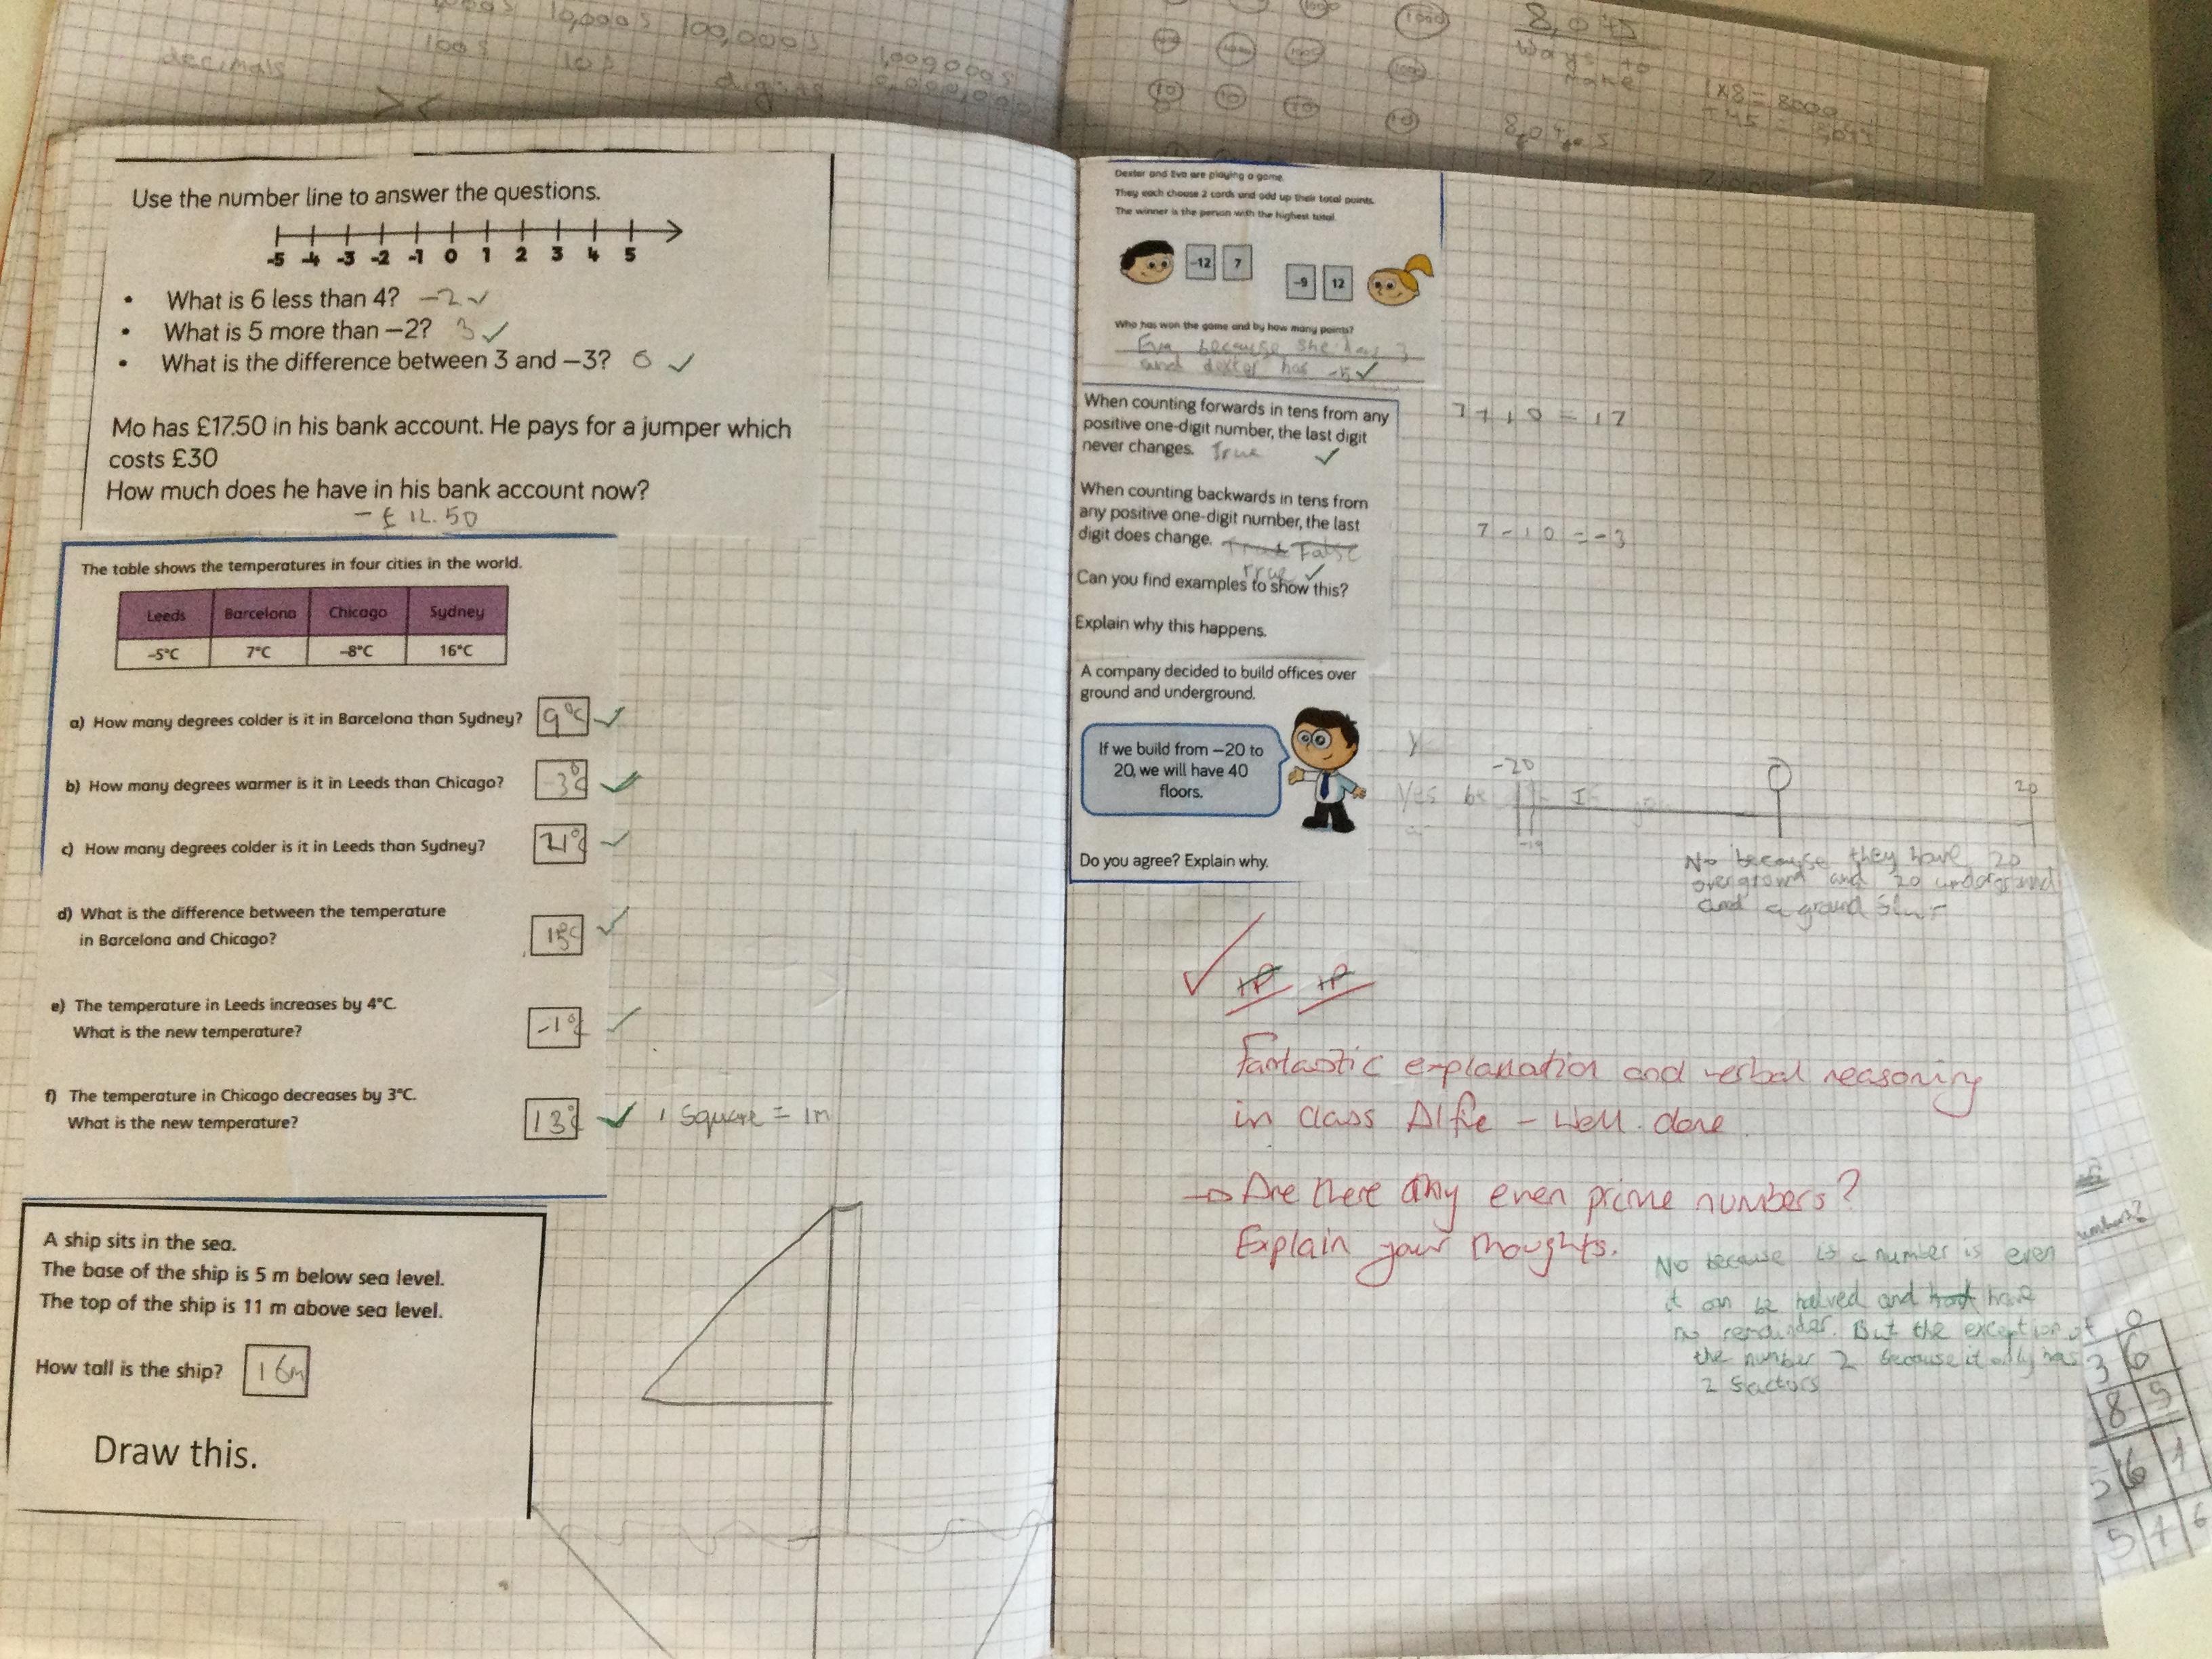 1,000s 10,000s 100,000s 1,000,000s
decimals 100s 10s digits 0,000,000
> <
Use the number line to answer the questions.
-5 -4 -3 -2 -1 0 1 2 3 4 5
• What is 6 less than 4? -2 ✓
• What is 5 more than −2? 3 ✓
• What is the difference between 3 and −3? 6 ✓
Mo has £17.50 in his bank account. He pays for a jumper which
costs £30
How much does he have in his bank account now?
- £12.50
The table shows the temperatures in four cities in the world.
Leeds Barcelona Chicago Sydney
-5°C 7°C -8°C 16°C
a) How many degrees colder is it in Barcelona than Sydney? 9°c ✓
b) How many degrees warmer is it in Leeds than Chicago? -3°c ✓
c) How many degrees colder is it in Leeds than Sydney? 21°c ✓
d) What is the difference between the temperature
in Barcelona and Chicago? 15°c ✓
e) The temperature in Leeds increases by 4°C.
What is the new temperature? -1°c ✓
f) The temperature in Chicago decreases by 3°C.
What is the new temperature? 13°c ✓
1 Square = 1m
A ship sits in the sea.
The base of the ship is 5 m below sea level.
The top of the ship is 11 m above sea level.
How tall is the ship? 16m
Draw this.
8,045
Ways to
make
1×8=8000
Dexter and Eva are playing a game.
They each choose 2 cards and add up their total points.
The winner is the person with the highest total.
-12 7
-9 12
Who has won the game and by how many points?
Eva because she has 3
and dexter has -5 ✓
When counting forwards in tens from any
positive one-digit number, the last digit
never changes. True ✓
7+10=17
When counting backwards in tens from
any positive one-digit number, the last
digit does change. True False
True ✓
7-10=-3
Can you find examples to show this?
Explain why this happens.
A company decided to build offices over
ground and underground.
If we build from −20 to
20, we will have 40
floors.
Do you agree? Explain why.
Y
Yes be If you
-20 0 20
-19
No because they have 20
overground and 20 underground
and a ground floor
✓ HP HP
Fantastic explanation and verbal reasoning
in class Alfie - Well done
→ Are there any even prime numbers?
Explain your thoughts.
No because is a number is even
it can be halved and have
no remainder. But the exception of
the number 2 because it only has
2 factors
numbers?
0
3 6
8 5
5 6 1
5 4 6